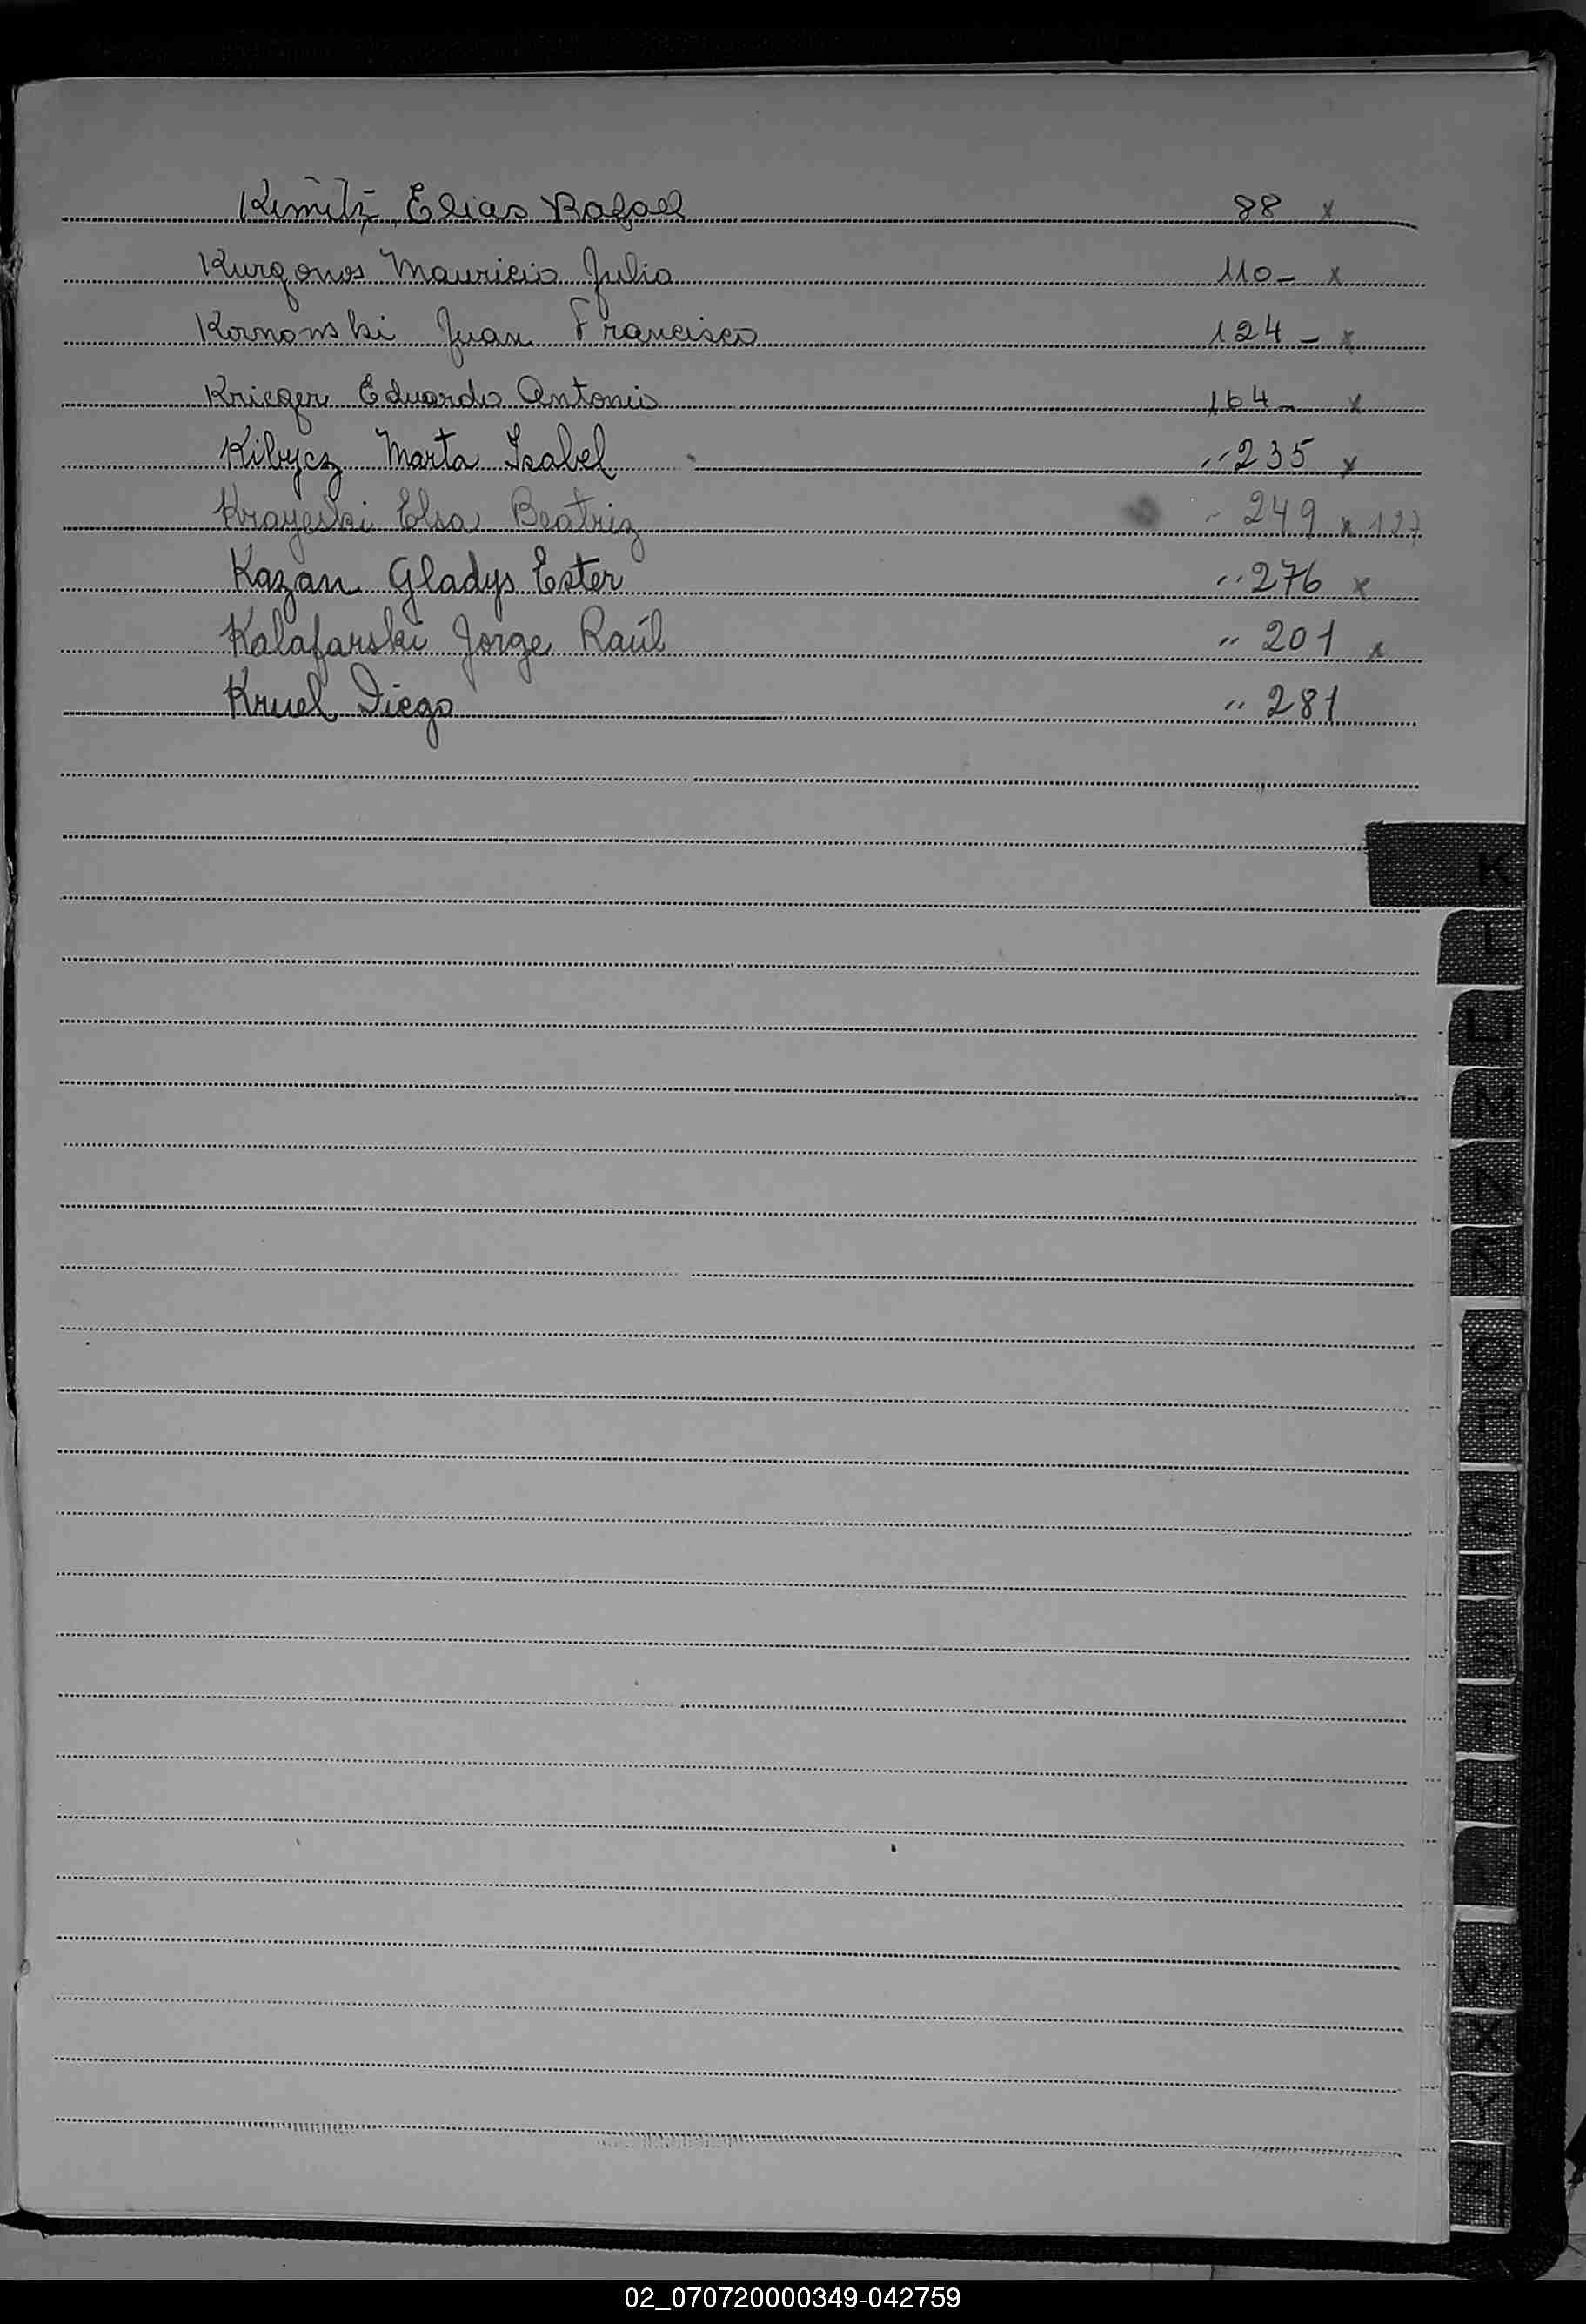 Kimitz Elias Rafael 88 x
Kurgonos Mauricio Julio 110- x
Kornowski Juan Francisco 124 - x
Krieger Eduardo Antonio 164 - x
Kibycz Marta Isabel " 235 x
Krayeski Elsa Beatriz " 249 x 127
Kazan Gladys Ester " 276 x
Kalafarski Jorge Raúl " 201 x
Kruel Diego " 281
K
L
LL
M
N
Ñ
O
P
Q
R
S
T
U
W
X
Y
Z
02_070720000349-042759